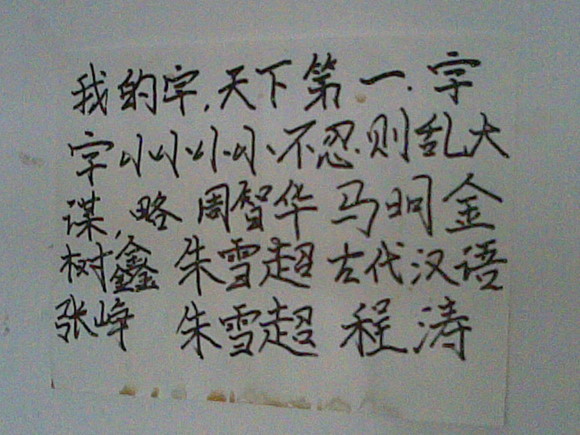 我的字,天下第一.字
字小小小小.不忍则乱大
谋,略 周智华 马明金
树鑫 朱雪超 古代汉语
张峥 朱雪超 程涛